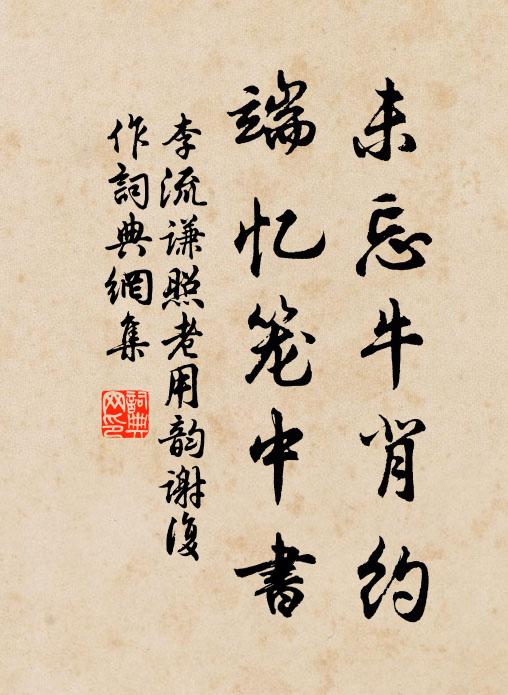 未忘牛背约
端忆笼中書
李流谦照老用韵谢復
作詞典網集
詞典网印